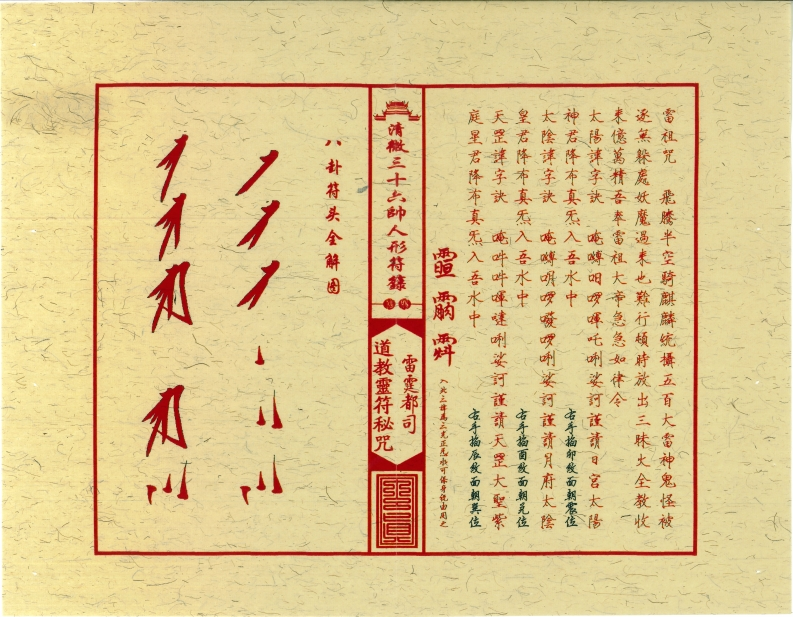 雷祖咒　飛騰半空騎麒麟統攝五百大雷神鬼怪被
逐無躲處妖魔過来也難行頓時放出三昧火全教收
来億萬精吾奉雷祖大帝急急如律令
太陽諱字訣　唵㗘呬啰嗶吒唎娑訶謹請日宮太陽
神君降布真炁入吾水中
右手掐卯紋面朝震位
太陰諱字訣　唵㗘明啰㗶啰唎娑訶謹請月府太陰
皇君降布真炁入吾水中
右手掐酉紋面朝兑位
天罡諱字訣　唵吽吽㖔㗲唎娑訶謹請天罡大聖紫
庭星君降布真炁入吾水中
右手掐辰紋面朝巽位
入此三諱為三光正炁水可
清微三十六帥人形符籙
雷霆都司
道教靈符秘咒
八卦符头全解图